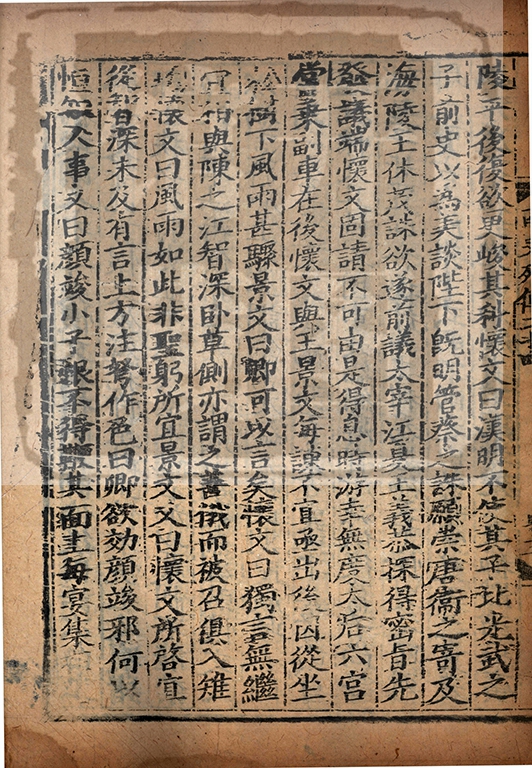 陵平後復欲更峻其科懷文曰漢明不使其子比光武之
子前史以為美談陛下既明管蔡之誅願崇唐衞之寄及
海陵王休茂誅欲遂前議太宰江夏王義恭探得密旨先
發議端懷文固請不可由是得息時游幸無度太后六宮
常乗副車在後懷文與王景文每諫不宜亟出後因從坐
松樹下風雨甚驟景文曰卿可以言矣懷文曰獨言無繼
宜相與陳之江智深卧草側亦謂之善俄而被召俱入雉
塲懷文曰風雨如此非聖躬所宜景文又曰懷文所啓宜
從智深未及有言上方注弩作色曰卿欲効顔竣邪何以
恒知人事又曰顔竣小子恨不得鞭其面主每宴集在